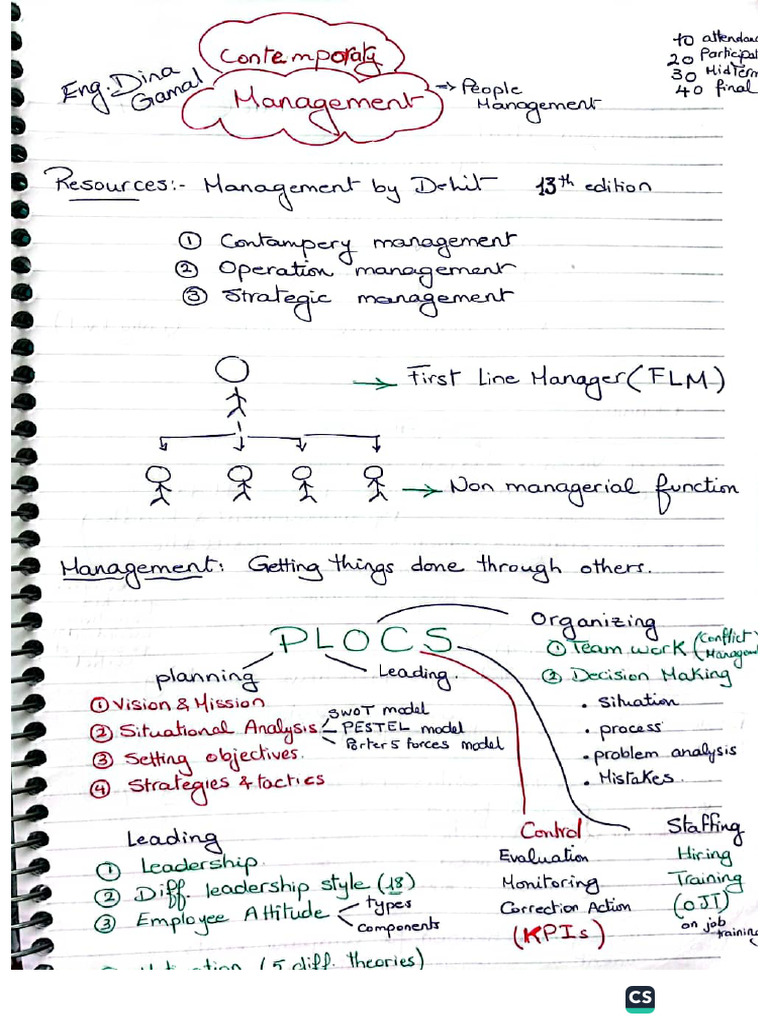 Contemporaty
Management
Eng. Dina
Gamal
→ People
Management
10 attendanc
20 Participat
30 MidTerm
40 final
Resources:- Management by Dehit 13th edition
① Contampery management
② Operation management
③ Strategic management
→ First Line Manager (FLM)
→ Non managerial function
Management: Getting things done through others.
PLOCS
planning
① Vision & Mission
② Situational Analysis
SWOT model
PESTEL model
Porter 5 forces model
③ Setting objectives.
④ Strategies & tactics
Leading.
Organizing
① Team work (Conflict
Managem
② Decision Making
• situation
• process
• problem analysis
• Mistakes.
Leading
① Leadership.
② Diff. leadership style (18)
③ Employee Attitude
types
components
(5 diff. theories)
Control
Evaluation
Monitoring
Correction Action
(KPIs)
Staffing
Hiring
Training
(OJT)
on job
training
CS